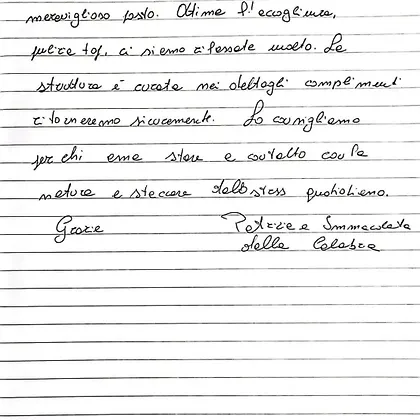 meraviglioso posto. Ottima l'accoglienza,
pulizia top, ci siamo rilassate molto. La
struttura è curata nei dettagli complimenti
ritorneremo sicuramente. Lo consigliamo
per chi ama stare a contatto con la
natura e staccare dallo stress quotidiano.
Grazie Patrizia e Immacolata
dalla Calabria